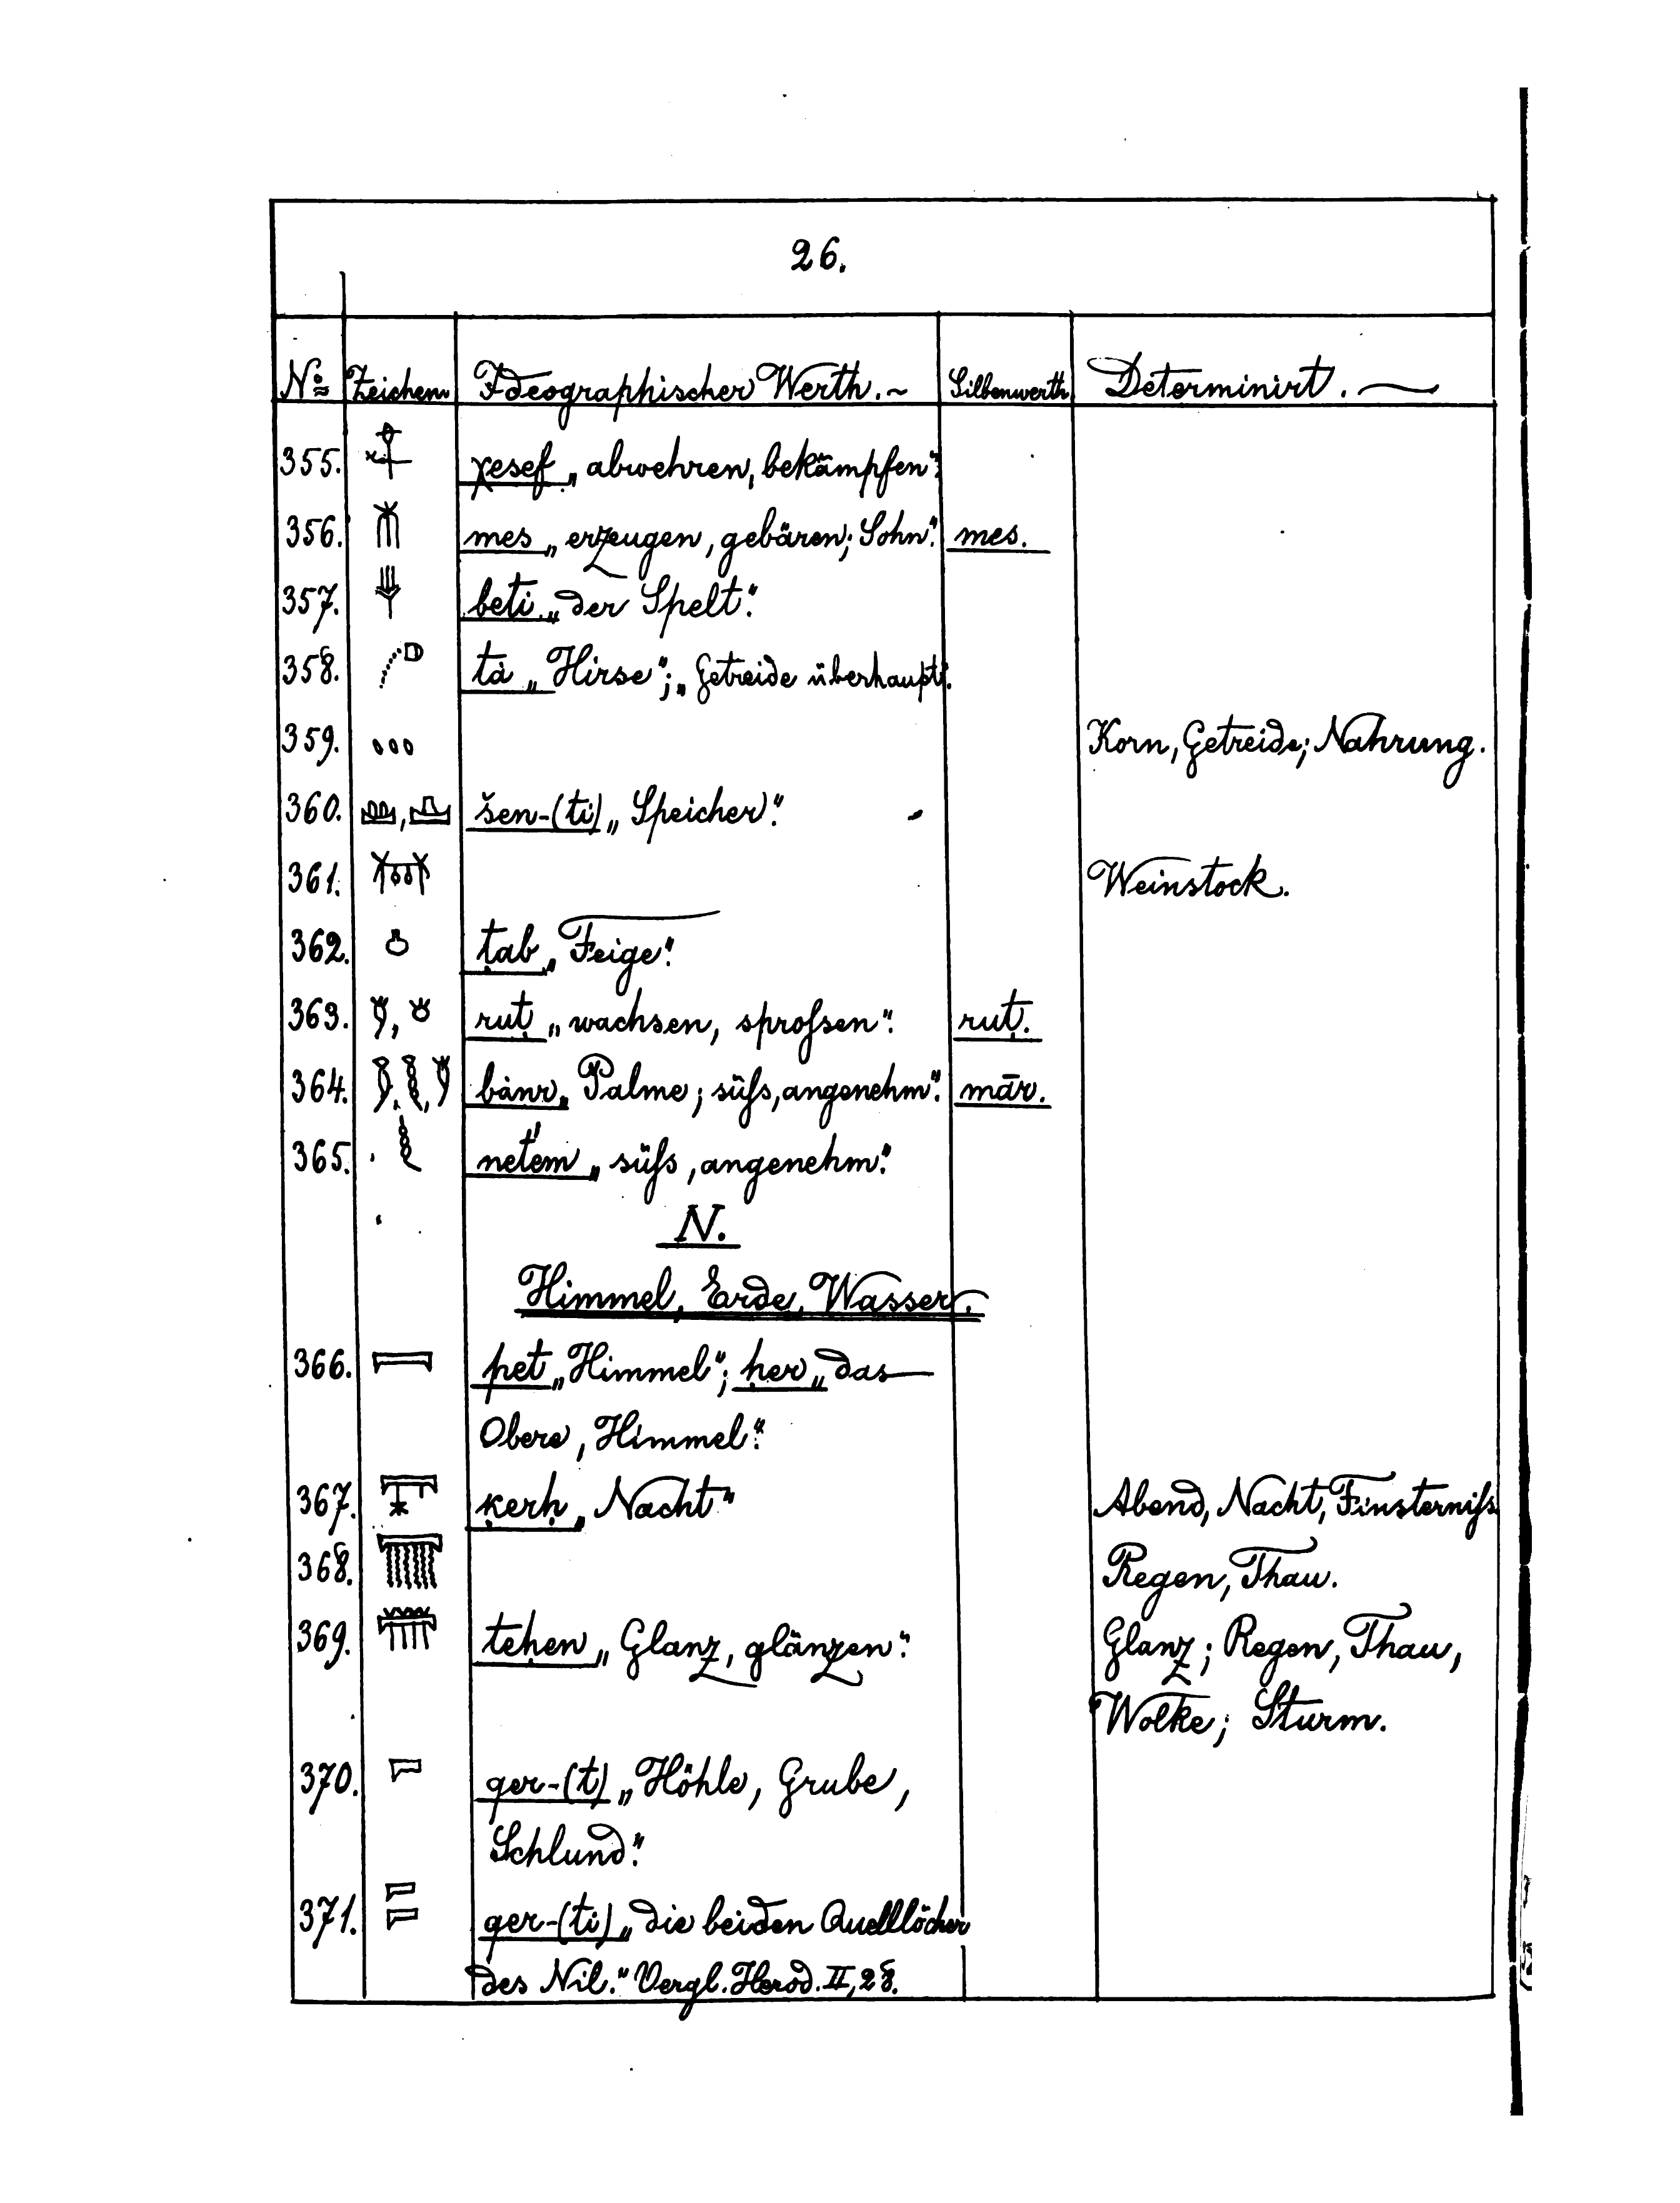 26.
No Zeichen. Ideographischer Werth. ~ Silbenwerth Determinirt. —
355. χesef „abwehren, bekämpfen".
356. mes „erzeugen, gebären; Sohn". mes.
357. beti „der Spelt".
358. tȧ „Hirse"; „Getreide überhaupt".
359. Korn, Getreide; Nahrung.
360. , šen-(ti) „Speicher".
361. Weinstock.
362. ṭab „Feige".
363. , ruṭ „wachsen, sproſsen". ruṭ.
364. , , bȧnr „Palme; süſs, angenehm". mār.
365. net'em „süſs, angenehm".
N.
Himmel, Erde, Wasser.
366. pet „Himmel"; ḥer „das
Obere, Himmel".
367. ḳerḥ „Nacht" Abend, Nacht, Finsterniſs
368. Regen, Thau.
369. teḥen „Glanz, glänzen". Glanz; Regen, Thau,
Wolke; Sturm.
370. qer-(t) „Höhle, Grube,
Schlund".
371. qer-(ti) „die beiden Quelllöcher
des Nil." Vergl. Herod. II, 28.